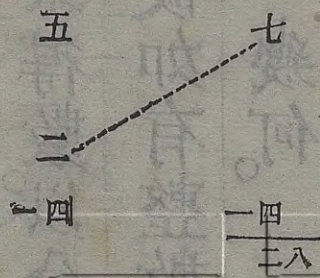 五 七
二
一四 一四
二八